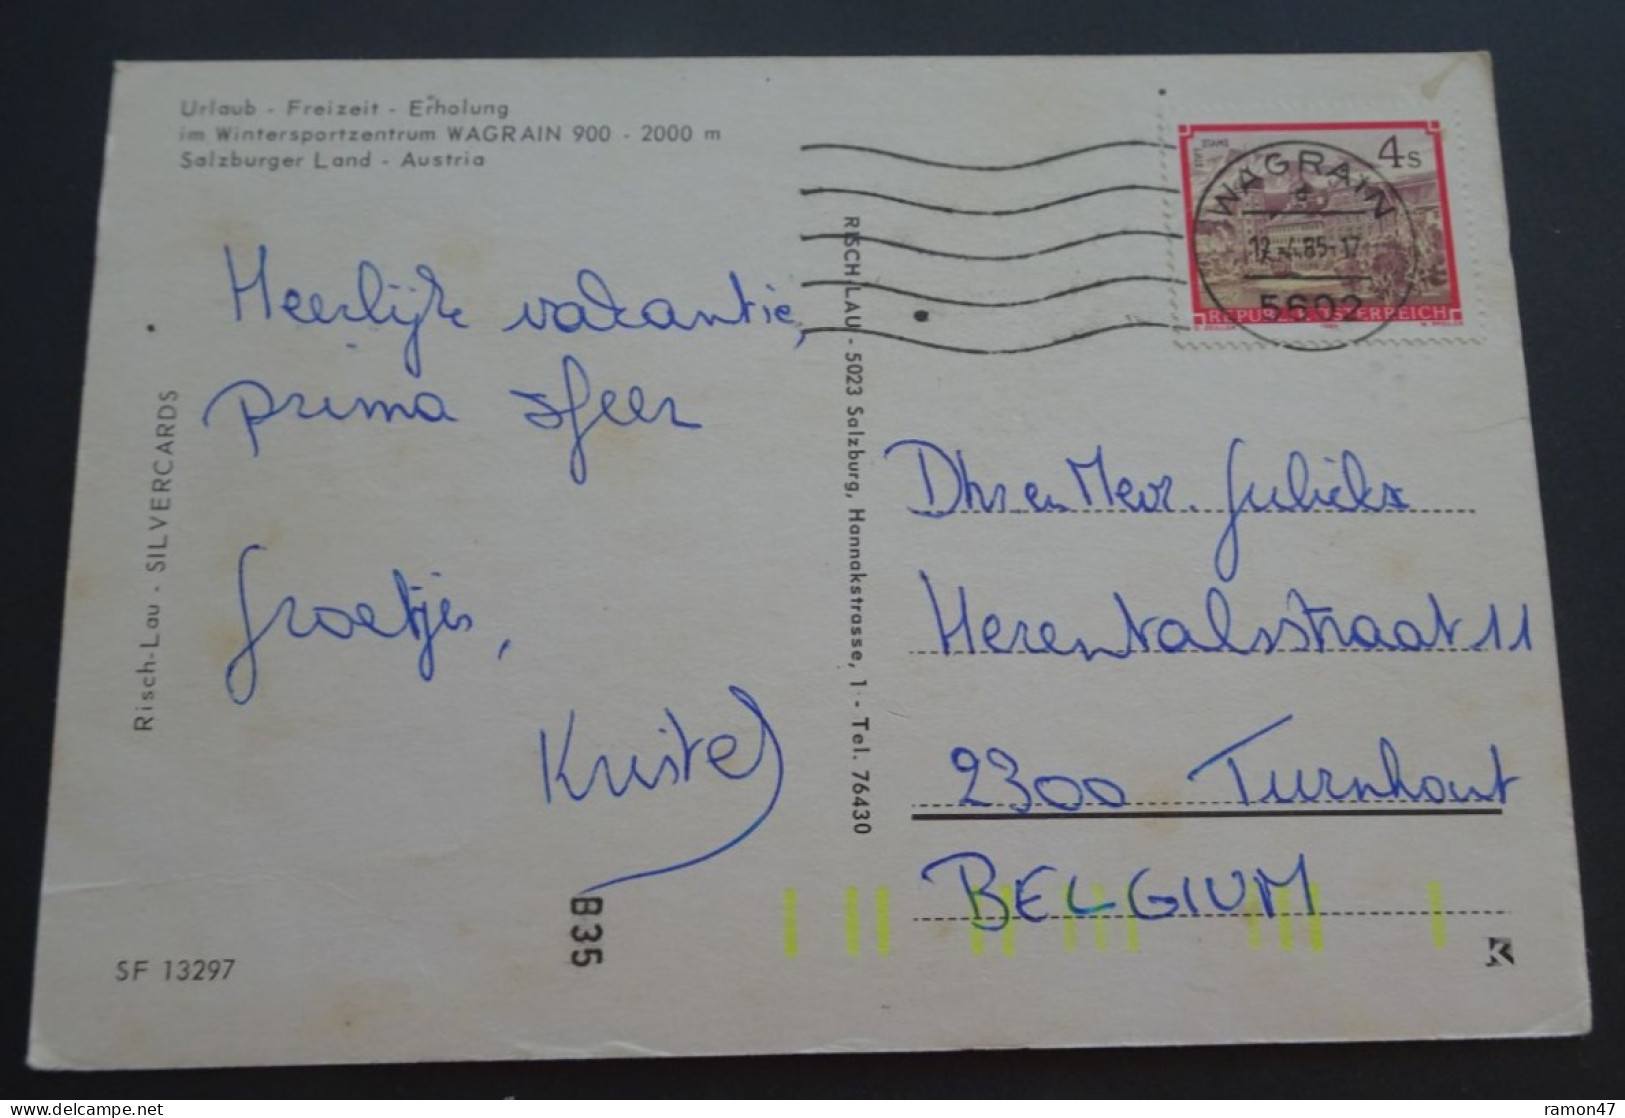 Urlaub - Freizeit - Erholung
im Wintersportzentrum WAGRAIN 900 - 2000 m
Salzburger Land - Austria
Heerlijke vakantie,
prima sfeer
Groetjes,
Kristel
Risch-Lau - SILVERCARDS
SF 13297
B35
RISCH-LAU - 5023 Salzburg, Hannakstrasse, 1 - Tel. 76430
STIFT STAMS
4 S
REPUBLIK ÖSTERREICH
WAGRAIN
12.-4.85-17
5602
Dhr en Mevr.
Herentalsstraat 11
2300 Turnhout
BELGIUM
ramon47